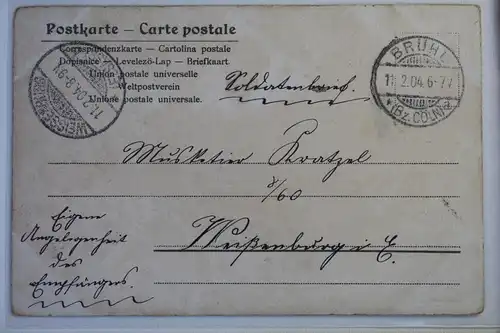 Postkarte – Carte postale
Correspondenzkarte — Cartolina postale
Dopisnice — Levelező-Lap — Briefkaart.
Union postale universelle
Weltpostverein
Unione postale universale.
Soldatenbrief.
BRÜHL
11. 2. 04. 6-7 N
* (Bz. CÖLN) a
WEISSENBURG
11. 2. 04. 8-9 V.
Musketier Kratzel
8/60
Weißenburg i. E.
Eigene
Angelegenheit
des
Empfängers.